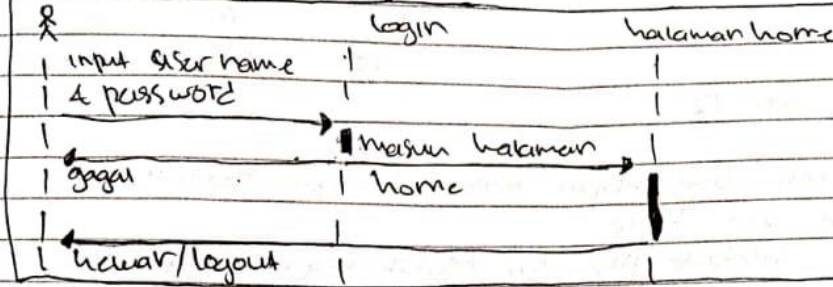 login halaman home
input username
& password
masuk halaman
gagal home
keluar/logout